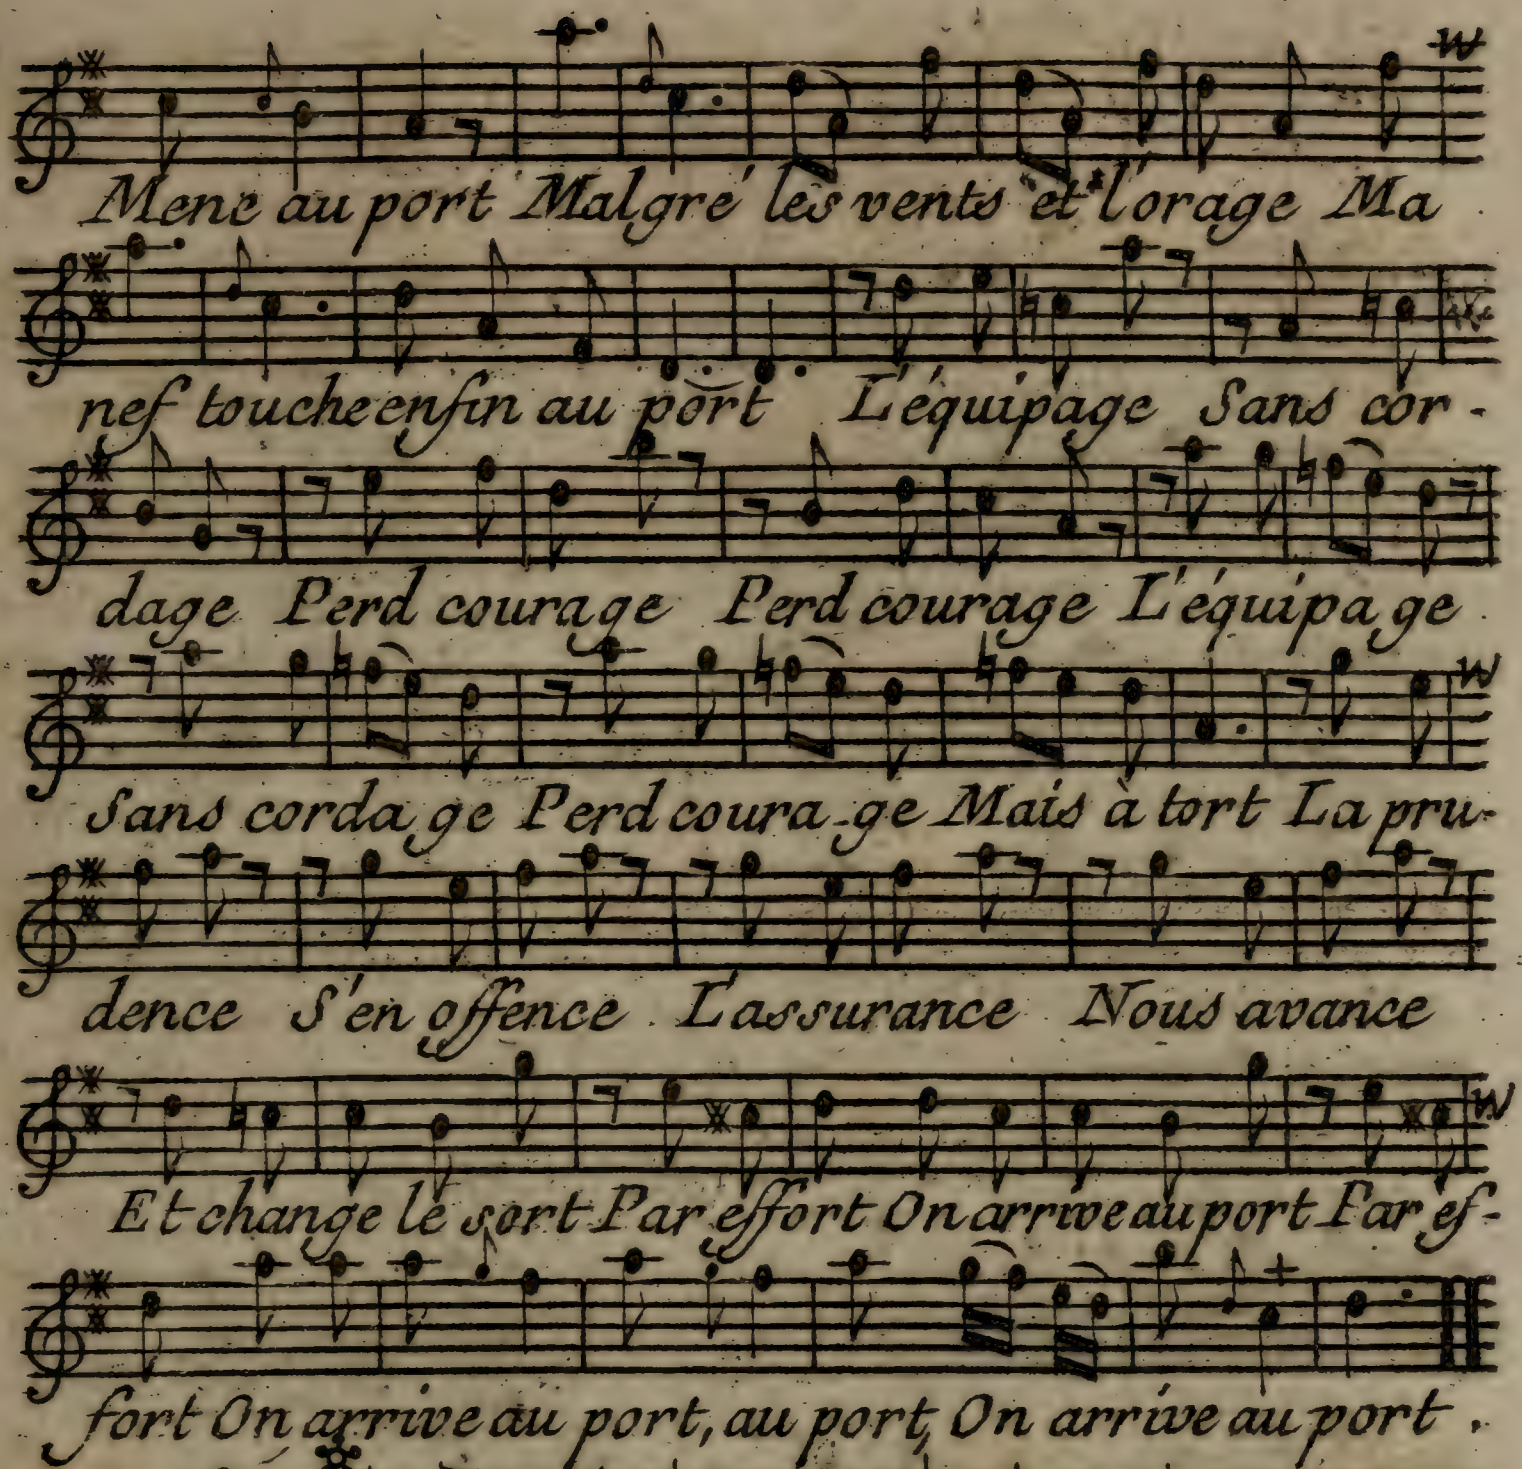 Mene au port Malgré les vents et l'orage Ma
nef touche enfin au port L'équipage Sans cor-
dage Perd courage Perd courage L'équipage
Sans cordage Perd coura-ge Mais à tort La pru-
dence S'en offence L'assurance Nous avance
Et change le sort Par effort On arrive au port Par ef-
fort On arrive au port, au port, On arrive au port.